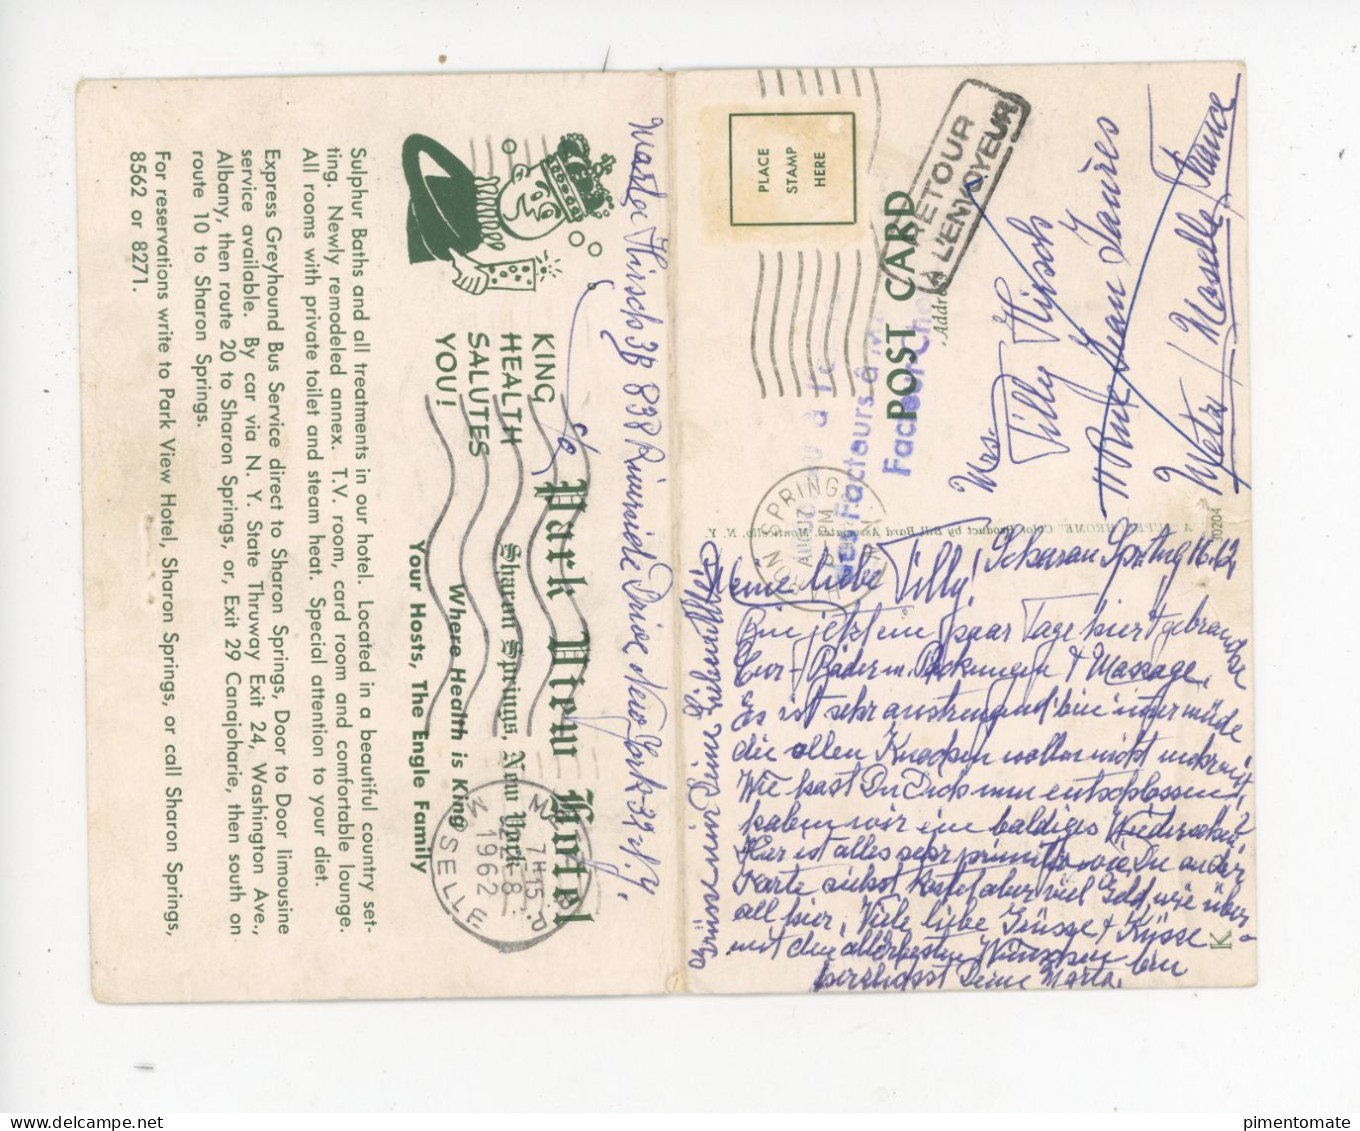 Marta Hirsch 3B 838 Riverside Drive New York 32 N.Y.
c/o Park View Hotel
Sharon Springs, New York
Where Health is King
Your Hosts, The Engle Family
KING
HEALTH
SALUTES
YOU!
Sulphur Baths and all treatments in our hotel. Located in a beautiful country set-
ting. Newly remodeled annex. T.V. room, card room and comfortable lounge.
All rooms with private toilet and steam heat. Special attention to your diet.
Express Greyhound Bus Service direct to Sharon Springs, Door to Door limousine
service available. By car via N. Y. State Thruway Exit 24, Washington Ave.,
Albany, then route 20 to Sharon Springs, or, Exit 29 Canajoharie, then south on
route 10 to Sharon Springs.
For reservations write to Park View Hotel, Sharon Springs, or call Sharon Springs,
8562 or 8271.
MOSELLE
7H15
1962
PLACE
STAMP
HERE
POST CARD
Address
RETOUR
À L'ENVOYEUR
Facteurs à
Facteur Che
SPRINGS
AUG
PM
Mrs.
Tilly Hirsch
11 Rue Jean Jaurès
Metz / Moselle France
A "SUPER CHROME" Color Product by Bill Bard Associates, Monticello, N. Y.
30204
K
Scharon Spring 16. 62
Meine liebe Tilly!
Bin jetzt ein paar Tage hier gebrauche
Cur-Bäder m. Packungen & Massage,
es ist sehr anstrengend bin immer müde
die alten Knochen wollen nicht mehr mit,
Wie hast Du Dich nun entschlossen,
haben wir ein baldiges Wiedersehen?
Hier ist alles sehr primitiv wie Du an der
Karte siehst kostet aber viel Geld, wie über-
all hier, Viele liebe Grüsse & Küsse
mit den allerbesten Wünschen bin
herzlichst Deine Marta.